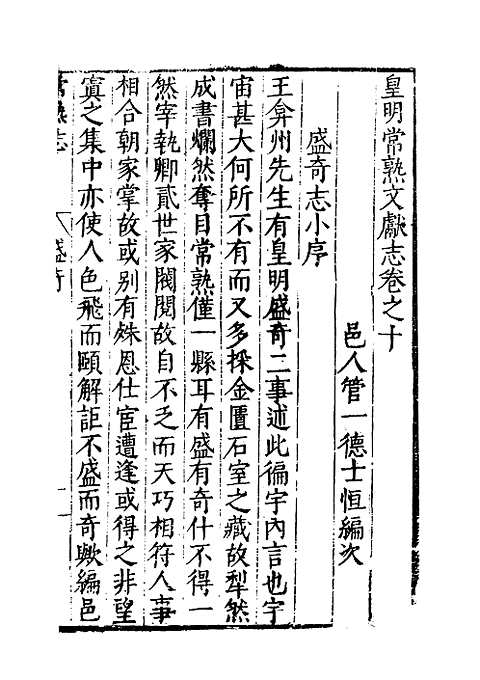 皇明常熟文獻志卷之十
邑人管一德士恒編次
盛奇志小序
王弇州先生有皇明盛奇二事述此徧宇內言也宇
宙甚大何所不有而又多採金匱石室之藏故犁然
成書爛然奪目常熟僅一縣耳有盛有奇什不得一
然宰執卿貳世家閥閱故自不乏而天巧相符人事
相合朝家掌故或別有殊恩仕宦遭逢或得之非望
寘之集中亦使人色飛而頤解詎不盛而奇歟編邑
常熟志
盛奇